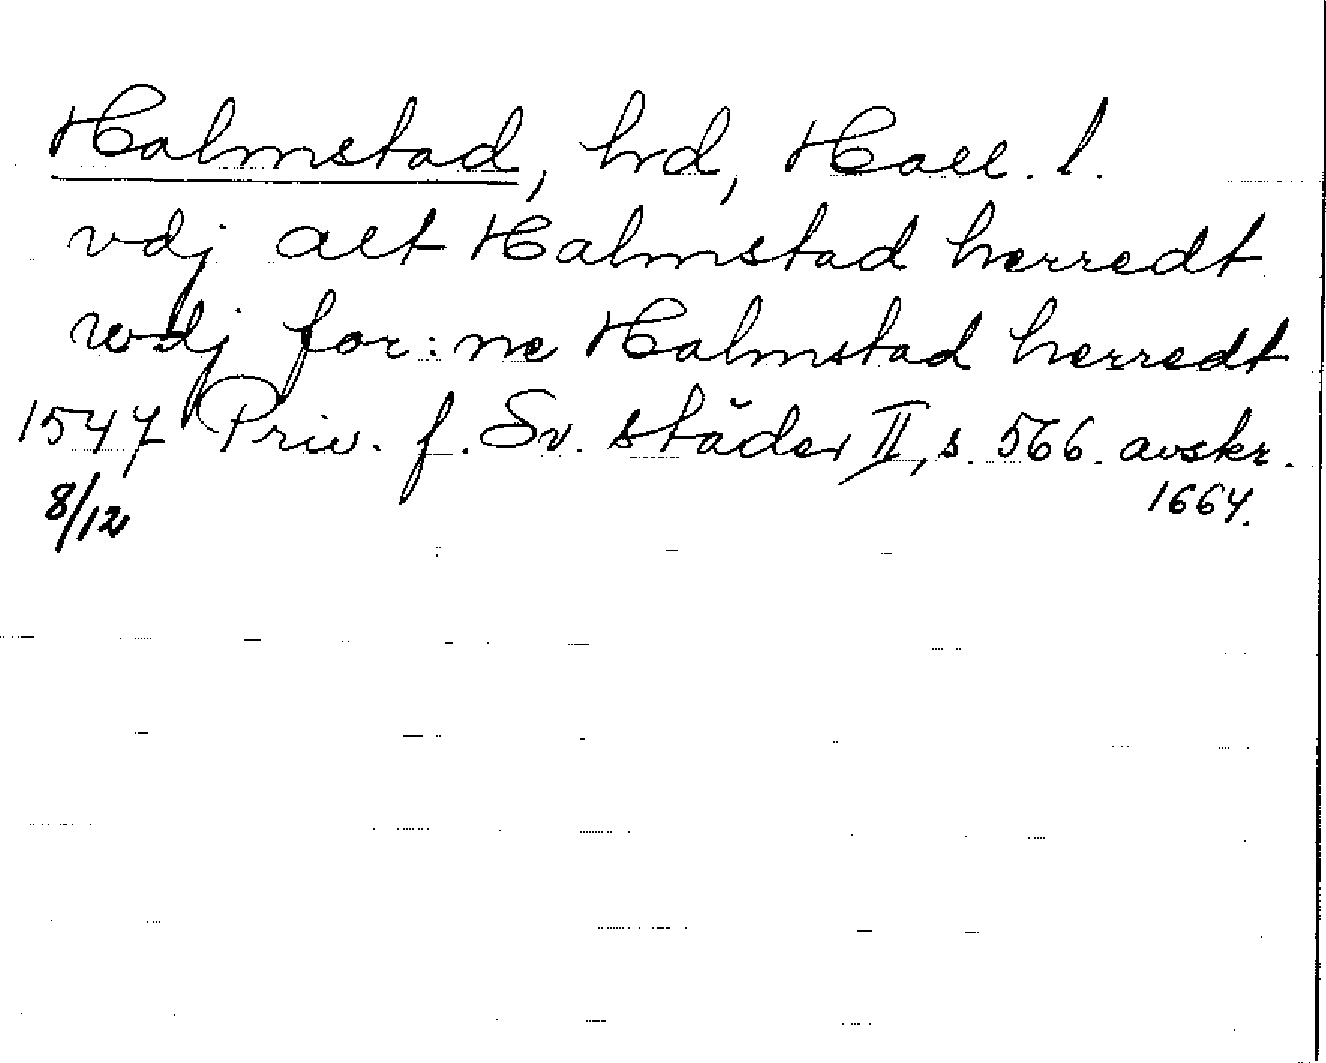 Halmstad, hrd, Hall. l.
vdj alt Halmstad herredt
wdj for:ne Halmstad herredt
1547 Priv. f. Sv. städer II, s. 566. avskr.
8/12 1664.